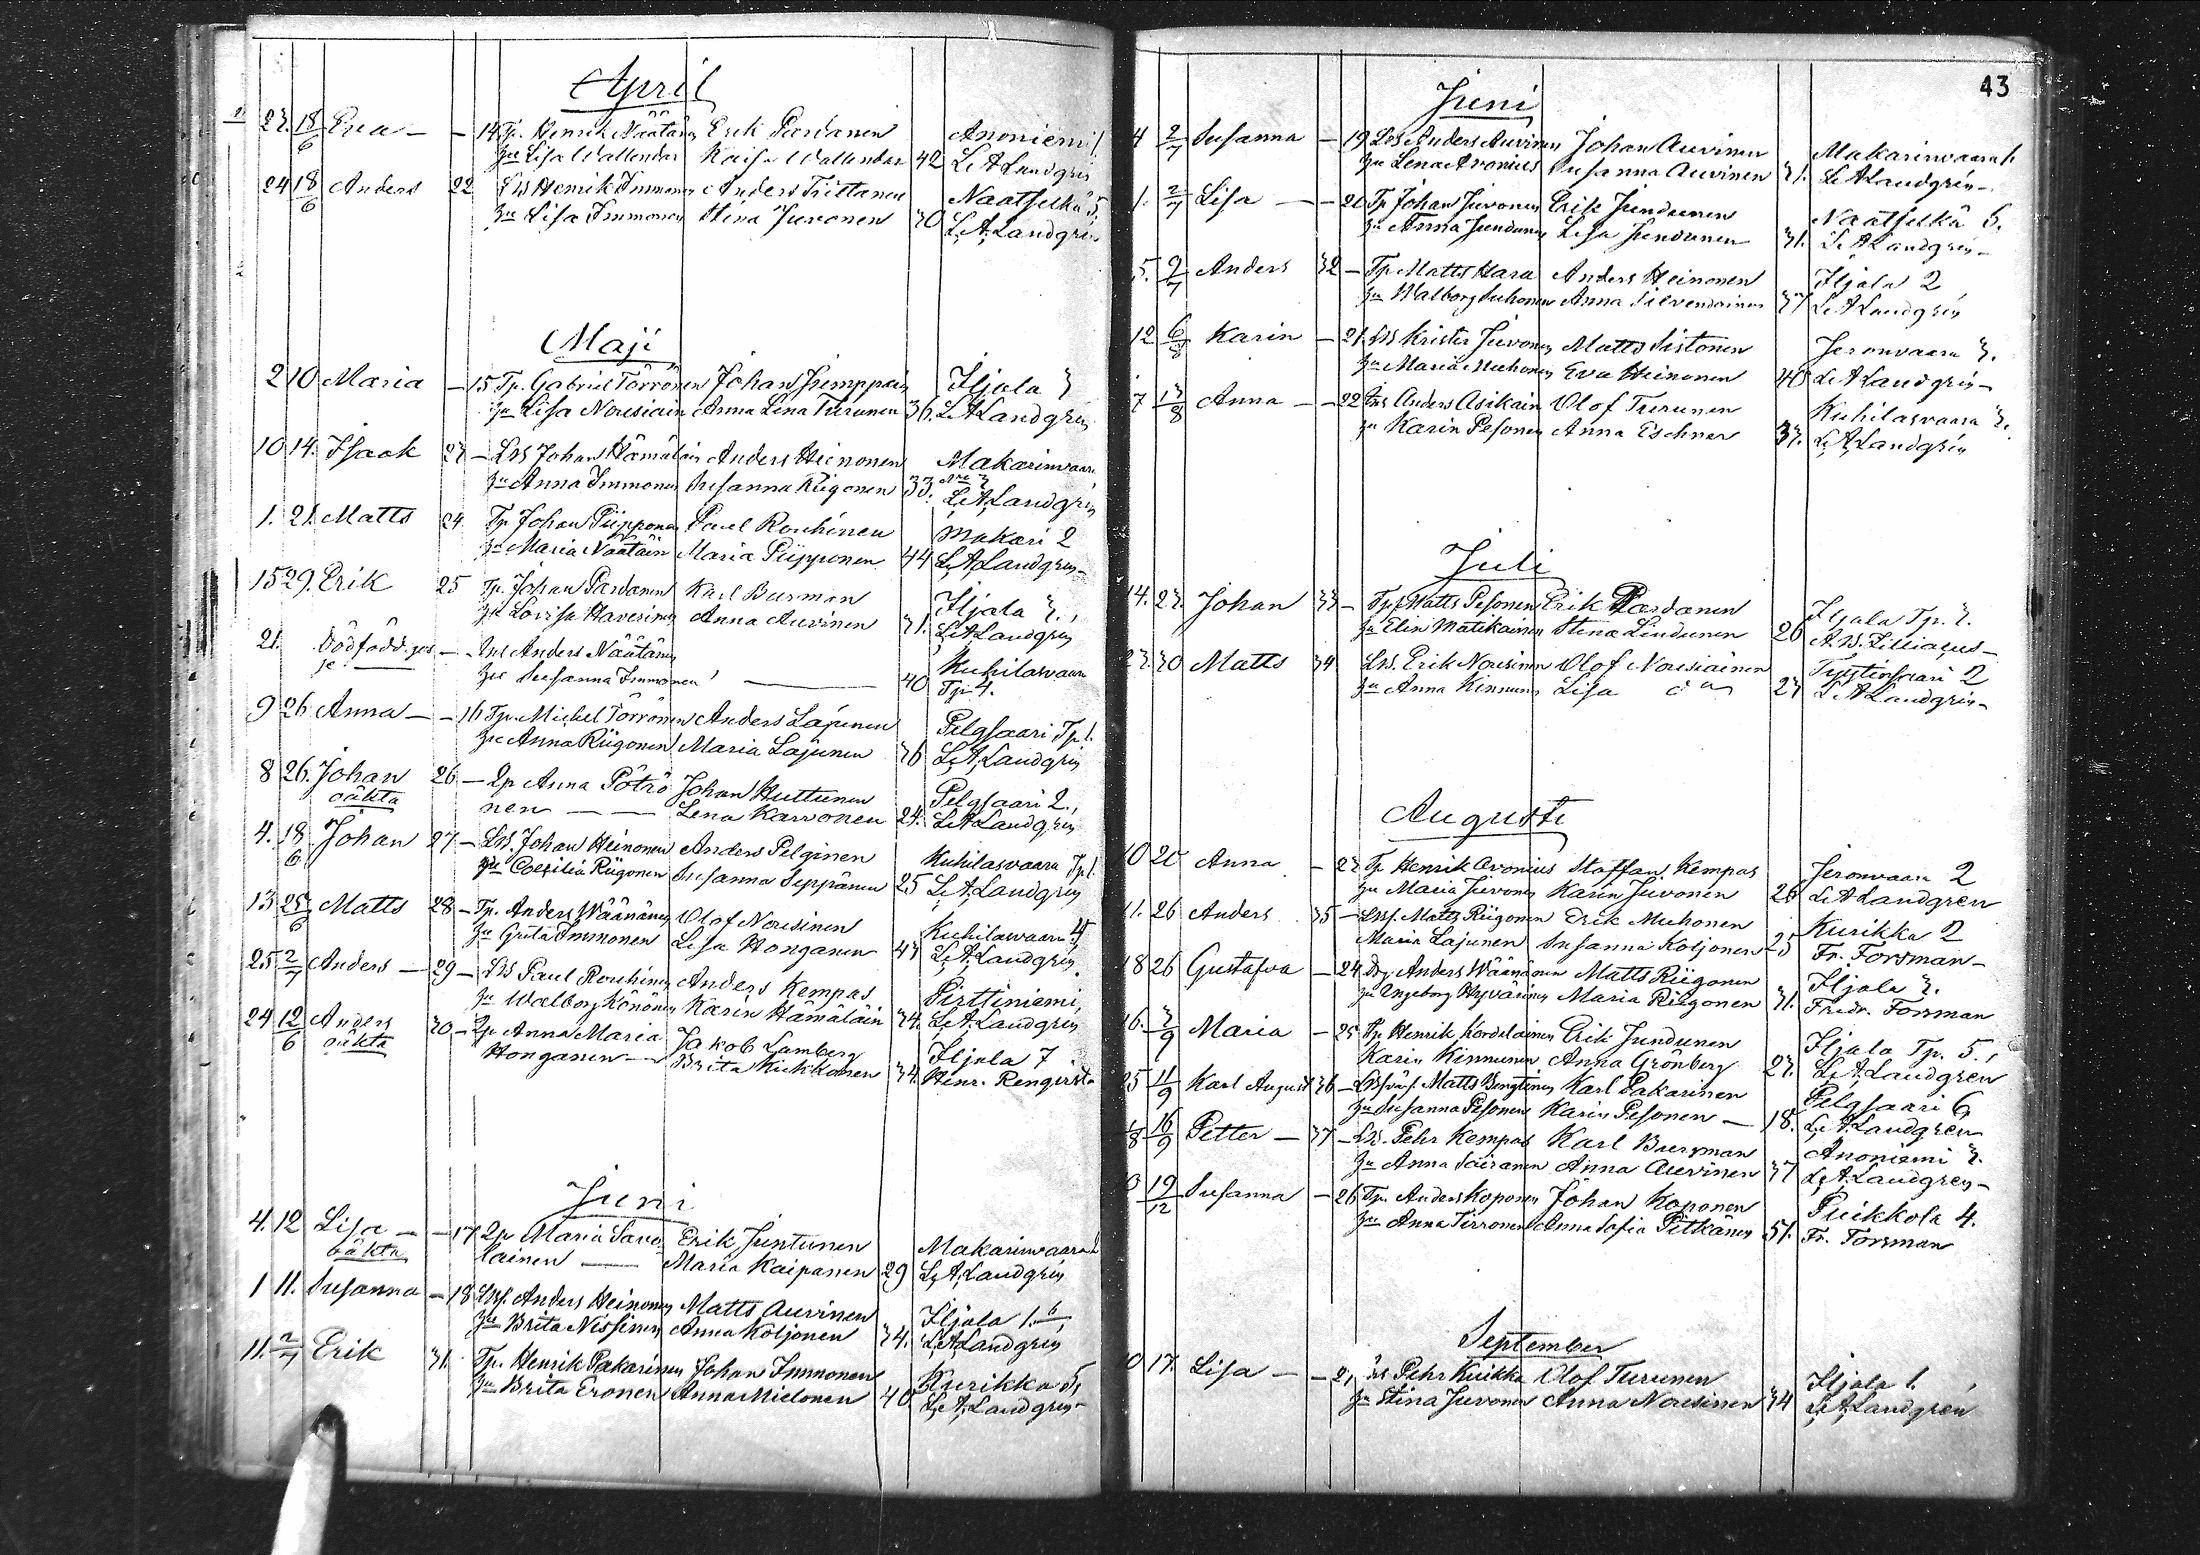 April
23. 18/6 Eva — — 14 Tp. Henrik Näätänen Erik Pardanen Anoniemi 1.
hu Lisa Wallendar Kaisa Wallendar 42 L. A. Landgrén
24 18/6 Anders 22 Lbs Henrik Immonen Anders Tiittanen Naatselkä 5.
hu Lisa Immonen Stina Juvonen 30 L. A. Landgrén
Maji
2 10 Maria — 15 Tp. Gabriel Törrönen Johan Kemppain Iljala 3
hu Lisa Nousiain Anna Lena Turunen 36. L. A. Landgrén
10 14. Isaak 23 — Lbs Johan Hämäläin Anders Heinonen Makarinvaara
hu Anna Immonen Susanna Riigonen 33. Nro 3 L. A. Landgrén
1. 21. Matts 24 Tp Johan Piipponen Paul Rouhinen Makari 2
hu Maria Näätäin Maria Piipponen 44 L. A. Landgrén
15 29. Erik 25 Tp. Johan Pardanen Karl Burman Iljala 3.
hu Lovisa Haverinen Anna Auvinen 31. L. A. Landgrén
21. Dödfödd — Anders Näätänen Kuhilasvaara
hu Susanna Immonen — 40 Tp 4.
9 26 Anna — — 16 Tp. Michel Törrönen Anders Lajunen Pelgsaari Tp 1.
hu Anna Riigonen Maria Lajunen 36 L. A. Landgrén
8 26. Johan 26 — Qp Anna Pöträ Johan Huttunen Pelgsaari 2.
oäkta nen — Lena Karvonen 24. L. A. Landgrén
4. 18/6 Johan 27 — Lbs. Johan Heinonen Anders Pelginen Kuhilasvaara Tp 1.
hu Coesilia Riigonen Susanna Seppänen 25 L. A. Landgrén
13 25/6 Matts 28 — Tp. Anders Wäänänen Olof Nousinen Kuhilavaara 4
hu Greta Immonen Lisa Honganen 43 L. A. Landgrén
25 2/7 Anders — 29 — Lbs Paul Rouhinen Anders Kempas Pirttiniemi
hu Walborg Könönen Karin Hämäläin 34. L. A. Landgrén
24 12/6 Anders 30 — Qp Anna Maria Jakob Lamberg Iljala 7
oäkta Honganen — Brita Kukkonen 34. Henr. Rengvist
Juni
4. 12 Lisa — — 17 Qp Maria Savo Erik Juntunen Makarinvaara
oäkta lainen — Maria Kaipanen 29 L. A. Landgrén
1 11. Susanna — 18 Lbs. Anders Heinonen Matts Auvinen Iljala 1.
hu Brita Nissinen Anna Koljonen 34. L. A. Landgrén
11. 2/7 Erik 31. Tp. Henrik Pakarinen Johan Immonen Kurikka 5
hu Brita Eronen Anna Mielonen 40 L. A. Landgrén
43
Juni
4 2/7 Susanna — 19 Lbs Anders Auvinen Johan Auvinen Makarinvaara 1.
hu Lena Aronius Susanna Auvinen 31. L. A. Landgrén
1. 2/7 Lisa — — 20 Tp Johan Juvonen Erik Jundunen Naatselkä 6.
hu Anna Jundunen Lisa Jundunen 31. L. A. Landgrén
5. 2/7 Anders 32 — Tp. Matts Hara Anders Heinonen Iljala 2
hu Walborg Suhonen Anna Silvendoinen 37 L. A. Landgrén
12 6/8 Karin — 21. Lbs Krister Juvonen Matts Sistonen Jeronvaara 3.
hu Maria Muhonen Eva Heinonen 40 L. A. Landgrén
7 13/8 Anna — — 22 Anders Asikain Olof Turunen Kuhilasvaara 3.
hu Karin Pesonen Anna Eschner 33. L. A. Landgrén
Juli
14. 23. Johan 33 — Tp. Matts Pesonen Erik Pardanen Iljala Tp. 3.
hu Elin Matikainen Stina Lindunen 26 A. W. Lilliacus
23. 30 Matts 34 Lbs. Erik Nousinen Olof Nousiainen 2
hu Anna Kinnunen Lisa d:o 23 L. A. Landgrén
Augusti
10 20 Anna — 23 Tp Henrik Aronius Staffan Kempas Jeronvaara 2
hu Maria Juvonen Karin Juvonen 26 L. A. Landgrén
11. 26 Anders 35 — Lbs. Matts Riigonen Erik Muhonen Kurikka 2
Maria Lajunen Susanna Koljonen 25 Fr. Forsman
18 26 Gustafva — 24 Anders Wäänänen Matts Riigonen Iljala 3.
hu Ingeborg Hyvärinen Maria Riigonen 31. Fredr. Forsman
16. 3/9 Maria — 25 Tp Henrik Kordelainen Erik Jundunen Iljala Tp. 5.
Karin Kinnunen Anna Grönberg 23. L. A. Landgrén
25 11/9 Karl August 36 — Matts Bengtinen Karl Pakarinen Pelgsaari 6
hu Susanna Pesonen Karin Pesonen — 18. L. A. Landgrén
18 16/9 Petter — 37 — Lbs. Pehr Kempas Karl Burgman Anoniemi 3.
hu Anna Sairanen Anna Auvinen 37 L. A. Landgrén
19/12 Susanna — 26 Tp. Anders Koponen Johan Koponen Puikkola 4.
hu Anna Tirronen Anna Sofia Pitkänen 51. Fr. Forsman
September
17. Lisa — — Pehr Kuikka Olof Turunen Iljala 1.
hu Stina Juvonen Anna Nousinen 34 L. A. Landgrén